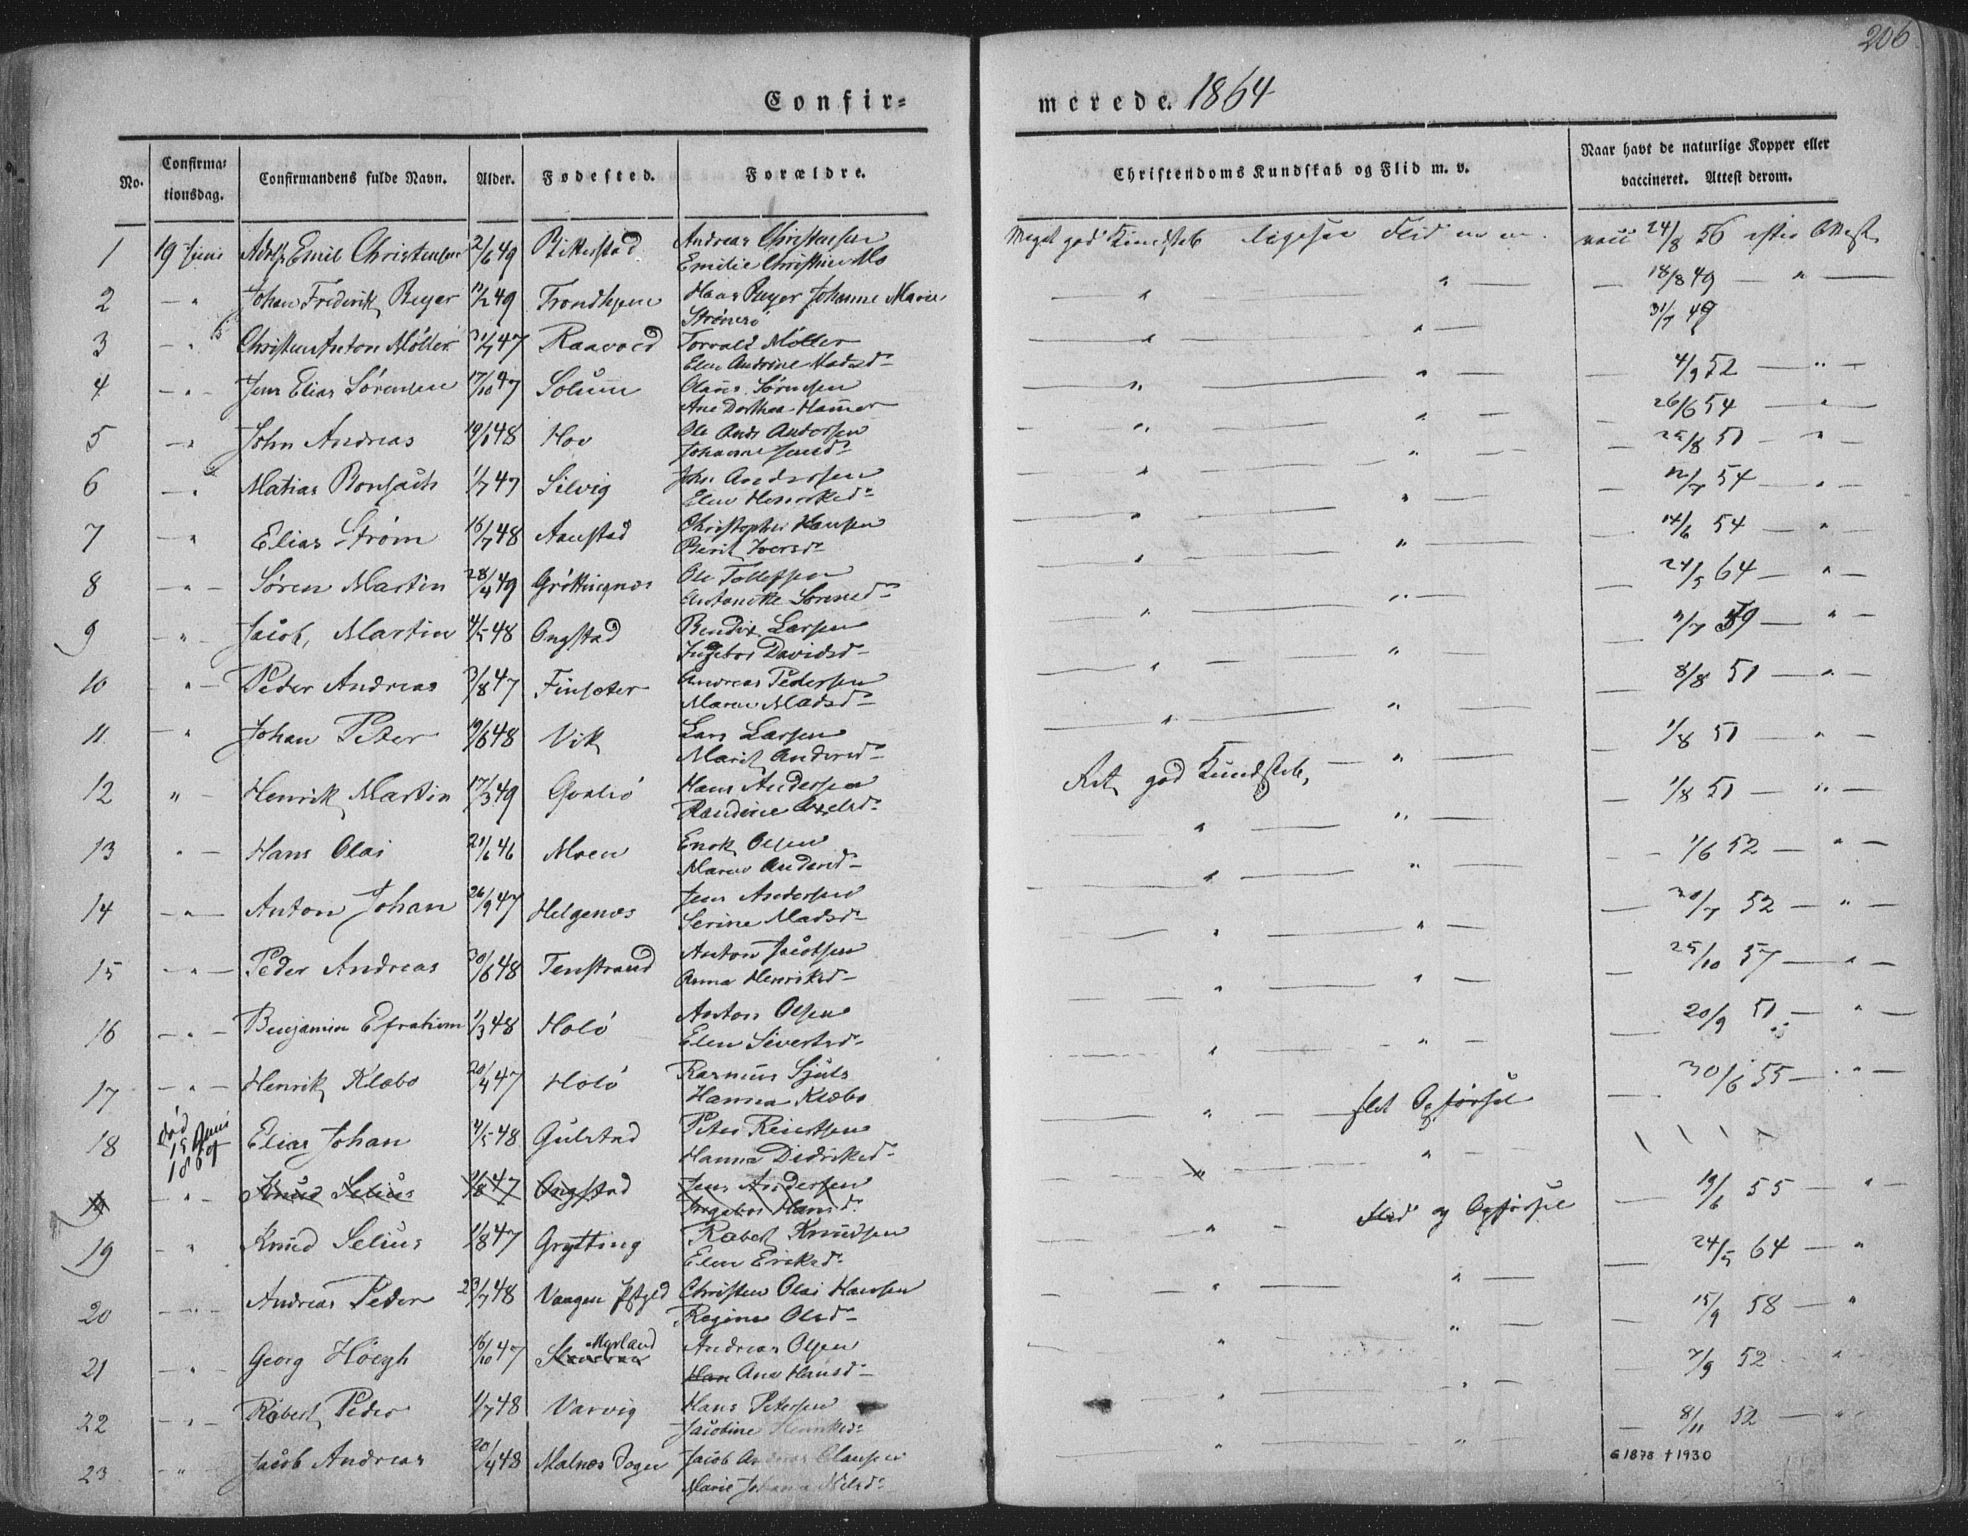 206
Confir= merede. 1864
No. Confirmationsdag. Confirmandens fulde Navn. Alder. Fødested. Forældre. Christendoms Kundskab og Flid m. v. Naar havt de naturlige Kopper eller vaccineret. Attest derom.
1 19 Juni Adolf Emil Christensen 2/6 49 Bitterstad Andreas Christensen Meget god Kundskab ligesaa Flid m m. vacc 24/8 56 efter Attest
Emilie Christine Mo
2 — " Johan Frederik Beyer 11/2 49 Trondhjem Haas Beyer Johanne Marie — " — " — 18/8 49 — " —
Strømsø
3 — " Christen Anton Möller 31/7 47 Raavold Torvald Möller — " — " — 31/7 49
Elen Andrine Madsd.
4 — " — Jens Elias Sørensen 17/10 47 Solum Olaus Sørensen — " — " — 4/9 52 — " —
Ane Dorthea Hamer
5 — " John Andreas 19/1 48 Hov Ole Andr Andersen — " — " — 26/6 54 — " —
Johanna Jensd.
6 — " Matias Bonsach 1/7 47 Silvig John Anderssen — " — " — 25/8 51 — " —
Elen Henriksd.
7 — " Elias Strøm 16/7 48 Aanstad Christopher Hansen — " — " — 12/7 54 — " —
Berit Iversd.
8 — " — Søren Martin 28/4 49 Gröttingnæs Ole Tollefsen — " — " — 14/6 54 — "
Antonette Sørensd.
9 — " Jacob, Martin 4/5 48 Ongstad Bendix Larsen — " — " — 24/5 64 — " —
Ingebor Davidsd.
10 — " — Peder Andreas 3/8 47 Finsæter Andreas Pedersen — " — " 11/7 59 — " —
Maren Madsd.
11. — " Johan Peter 19/6 48 Vik Lars Larsen — " — " 8/8 51 — " —
Marit Andersd.
12 " — Henrik Martin 17/3 49 Qvalø Hans Andersen Ret god Kundskab, — " — 1/8 51 — " —
Randine Axelsd.
13 " — Hans Olai 21/6 46 Moen Enok Olsen — " — " — 1/8 51 — " —
Maren Andersd.
14 — " — Anton Johan 26/9 47 Helgenæs Jens Andersen — " — " — 1/6 52 — " —
Serine Madsd.
15 — " — Peder Andreas 20/6 48 Tenstrand Anton Jacobsen — " — " — 20/7 52 — " —
Anna Henriksd.
16 — " — Benjamin Efraim 11/3 48 Holø Anton Olsen — " — " — 25/10 57 — " —
Elen Sivertsd.
17 — " — Henrik Klæbo 20/4 47 Holø Rasmus Sjuls — " — " — 20/9 51 — " —
Hanna Klæbo
18 død 15 Juni 1864 Elias Johan 4/5 48 Gulstad Peter Reiertsen — " — slet Opførsel 30/6 55 — " —
Hanna Didriksd.
19 — " — Knud Selius 1/8 47 Ongstad Jens Andersen — " — "
Ingebor Hansd.
19 " Knud Selius 1/8 47 Grytting Robert Knudsen — " — Flid og Opførsel — 19/6 55 — " —
Elen Eriksd.
20 — " — Andreas Peder 23/7 48 Vaagen Pstgld Christen Olai Hansen — " — " — 24/5 64 — "
Regine Olsd.
21 — " Georg Höegh 16/10 47 Myrland Andreas Olsen — " — " — 15/9 58 — "
Han Ane Hansd.
22 — " — Robert Peder 1/7 48 Varvig Hans Petersen — " — " — 7/9 52 "
Jacobine Henriksd.
23 — " — Jacob Andreas 20/4 48 Malnæs Sogn Jacob Andreas Clausen — " — " — 8/11 52 — " —
Marie Johanna Nilsd.
G 1878 † 1930